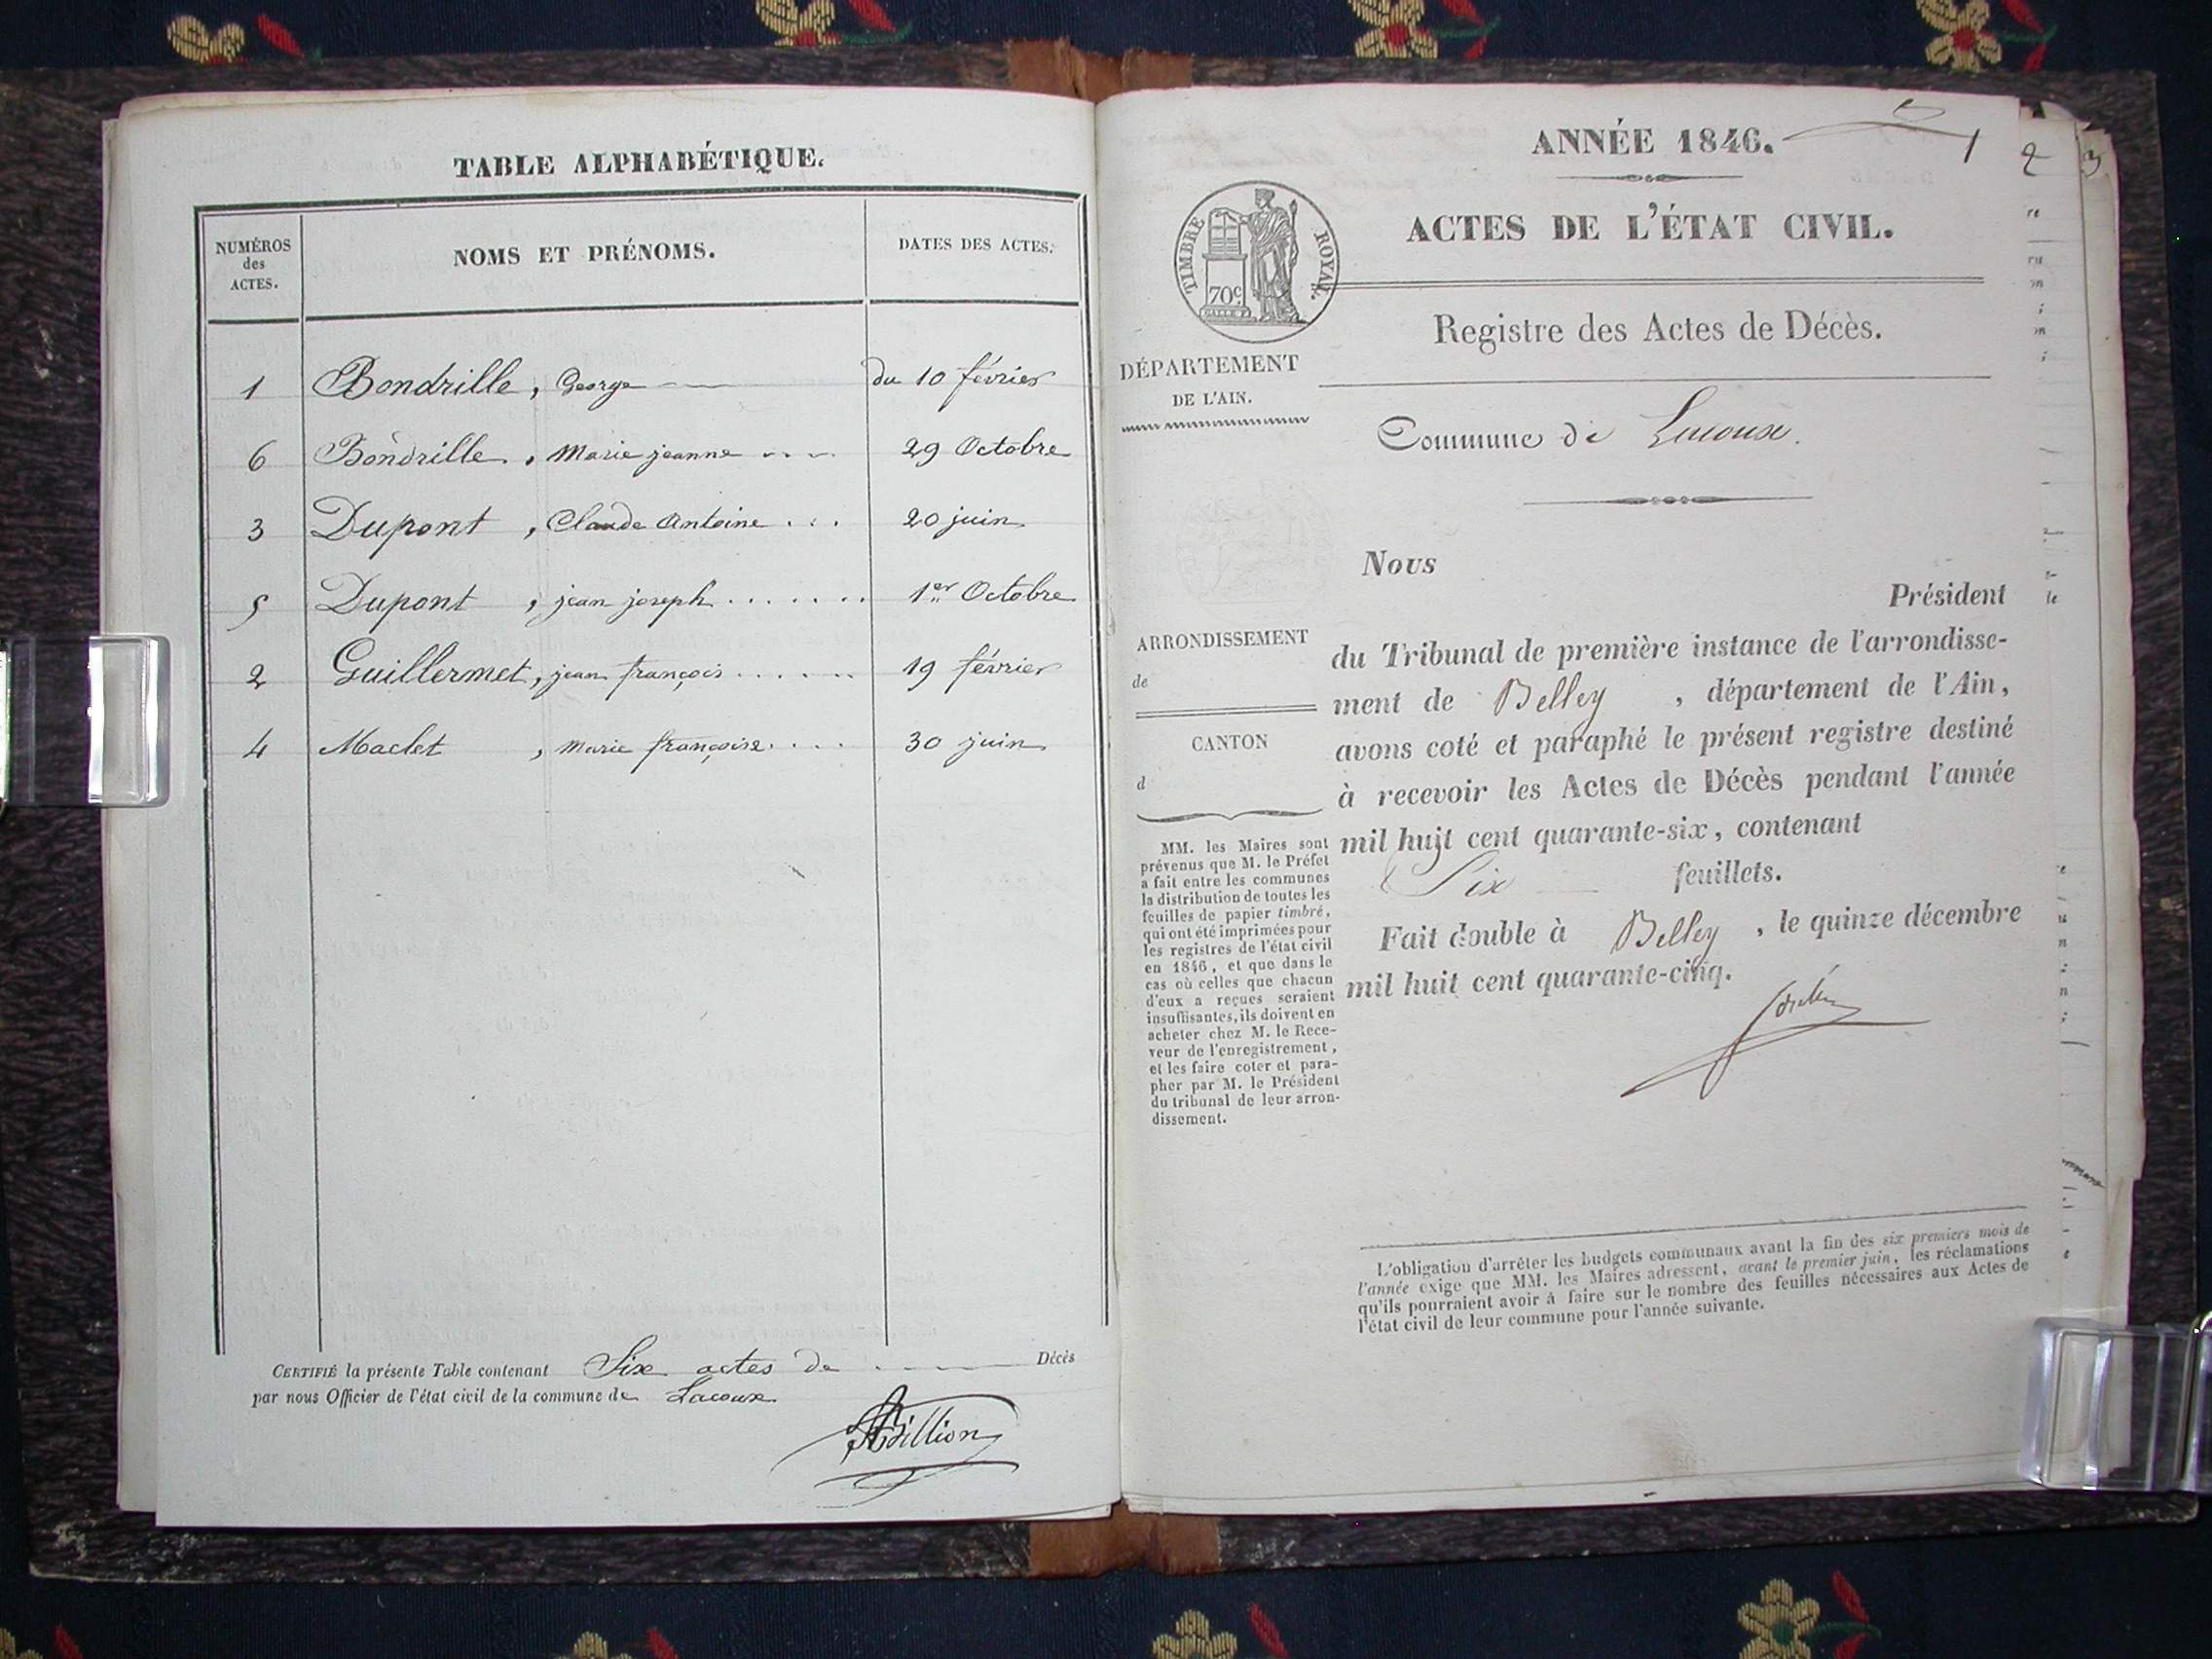 TABLE ALPHABÉTIQUE.
NUMÉROS
des
ACTES.
NOMS ET PRÉNOMS.
DATES DES ACTES.
1 Bondrille, George du 10 février
6 Bondrille, Marie jeanne 29 Octobre
3 Dupont, Claude Antoine 20 juin
5 Dupont, jean joseph 1er Octobre
2 Guillermet, jean françois 19 février
4 Maclet, Marie françoise 30 juin
CERTIFIÉ la présente Table contenant Six actes de Décès
par nous Officier de l'état civil de la commune de Lacoux
Billion
ANNÉE 1846.
1
2
3
TIMBRE ROYAL.
70c
ACTES DE L'ÉTAT CIVIL.
Registre des Actes de Décès.
DÉPARTEMENT
DE L'AIN.
Commune de Lacoux.
ARRONDISSEMENT
de
CANTON
d
MM. les Maires sont
prévenus que M. le Préfet
a fait entre les communes
la distribution de toutes les
feuilles de papier timbré,
qui ont été imprimées pour
les registres de l'état civil
en 1846, et que dans le
cas où celles que chacun
d'eux a reçues seraient
insuffisantes, ils doivent en
acheter chez M. le Rece-
veur de l'enregistrement,
et les faire coter et para-
pher par M. le Président
du tribunal de leur arron-
dissement.
Nous
Président
du Tribunal de première instance de l'arrondisse-
ment de Belley, département de l'Ain,
avons coté et paraphé le présent registre destiné
à recevoir les Actes de Décès pendant l'année
mil huit cent quarante-six, contenant
Six feuillets.
Fait double à Belley, le quinze décembre
mil huit cent quarante-cinq.
L'obligation d'arrêter les budgets communaux avant la fin des six premiers mois de
l'année exige que MM. les Maires adressent, avant le premier juin, les réclamations
qu'ils pourraient avoir à faire sur le nombre des feuilles nécessaires aux Actes de
l'état civil de leur commune pour l'année suivante.